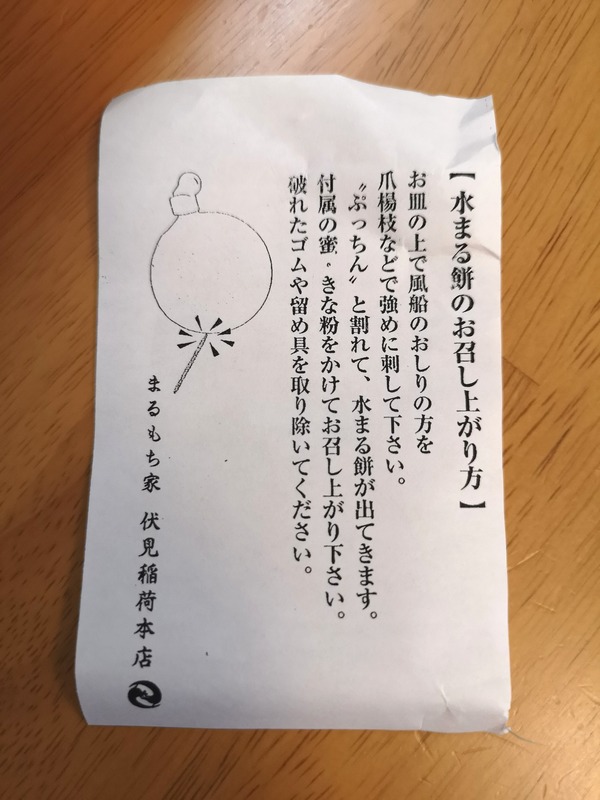 【水まる餅のお召し上がり方】
お皿の上で風船のおしりの方を
爪楊枝などで強めに刺して下さい。
〝ぷっちん〟と割れて、水まる餅が出てきます。
付属の蜜・きな粉をかけてお召し上がり下さい。
破れたゴムや留め具を取り除いてください。
まるもち家 伏見稲荷本店